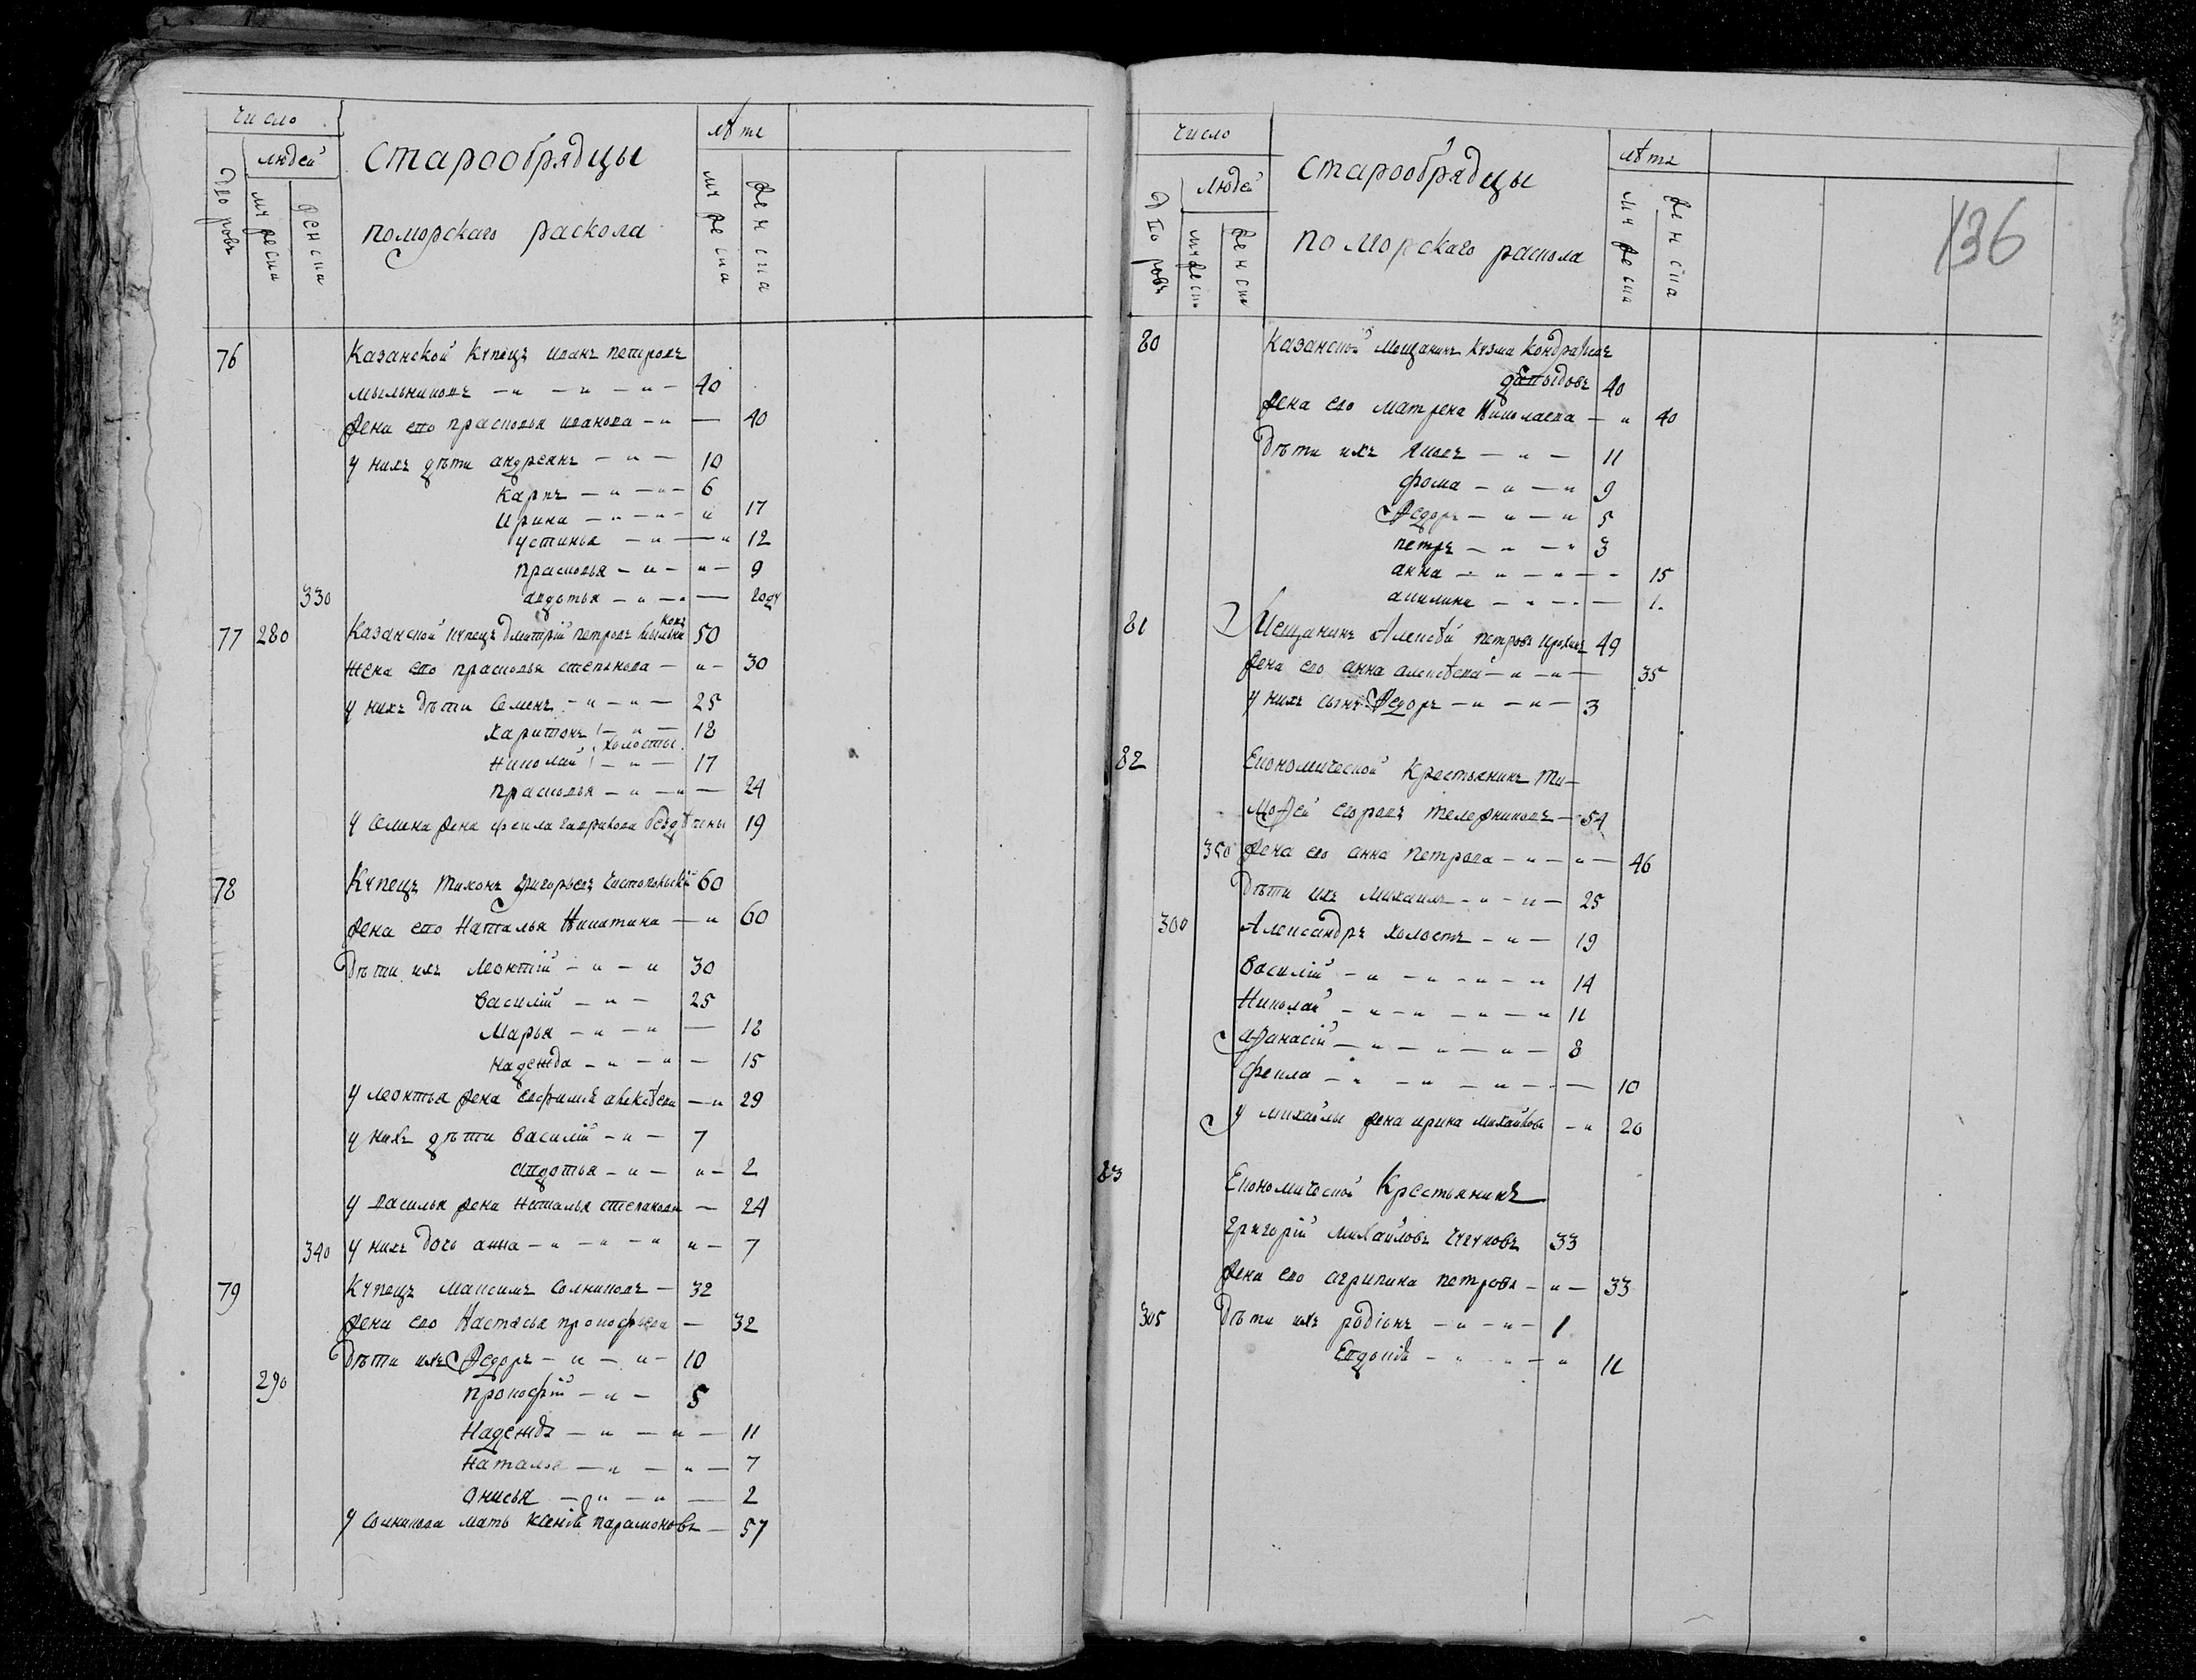 Число
людей
Дворовъ
мужеска
женска
Старообрядцы
поморскаго раскола
лѣтъ
мужеска
женска
76 Казанской Купецъ иванъ петровъ
мыльниковъ — „ — „ — „ — 40
жена ево прасковья иванова — „ — 40
у нихъ дѣти андреянъ — „ — 10
карпъ — „ — „ — 6
ирина — „ — „ — „ 17
устинья — „ — „ 12
прасковья — „ — „ — 9
330 авдотья — „ — „ — году
77 280 Казанской купецъ Дмитрій петровъ мыльниковъ 50
жена ево прасковья степанова — „ — 30
у нихъ дѣти Семенъ — „ — „ — 25
харитонъ — „ — 18
холосты
николай — „ — 17
прасковья — „ — „ — 24
у Семена жена фекла гаврилова бездѣтны 19
78 Купецъ тихонъ григорьевъ 60
жена ево наталья никитина — „ 60
Дѣти ихъ леонтій — „ — „ 30
василій — „ — 25
марья — „ — „ — 18
надежда — „ — „ — 15
у леонтья жена ефимія алексѣева — „ 29
у нихъ дѣти василій — „ — 7
авдотья — „ — „ — 2
у василья жена наталья степанова — 24
340 у нихъ дочь анна — „ — „ — „ „ — 7
79 Купецъ максимъ солниковъ — 32
жена ево настасья прокофьева — 32
Дѣти ихъ Ѳедоръ — „ — „ — 10
290 прокофій — „ — 5
надежда — „ — „ — 11
наталья — „ — „ — 7
анисья — „ — „ — 2
у солникова мать ксенія парамонова — 57
136
Число
людей
Дворовъ
мужеска
женска
Старообрядцы
поморскаго раскола
лѣтъ
мужеска
женска
80 Казанской мещанинъ кузма кондратьевъ
давыдовъ 40
жена ево матрена николаева — „ 40
Дѣти ихъ яковъ — „ — 11
фома — „ — „ 9
Ѳедоръ — „ — „ 5
петръ — „ — „ 3
анна — „ — „ — „ 15
акилина — „ — „ — 1.
81 Мещанинъ Алексѣй петровъ 49
жена ево анна алексѣева — „ — „ — 35
у нихъ сынъ Ѳедоръ — „ — „ — 3
82 Економической Крестьянинъ ти—
моѳей егоровъ — 54
350 жена ево анна петрова — „ — „ — 46
Дѣти ихъ михаилъ — „ — „ — 25
300 Александръ холостъ — „ — 19
василій — „ — „ — „ — „ 14
николай — „ — „ — „ — „ 11
аѳанасій — „ — „ — „ — 8
фекла — „ — „ — „ — „ — 10
у михайлы жена ирина михайлова — „ 20
83 Економической Крестьянинъ
григорій михаиловъ чугуновъ 33
жена ево агрипина петрова — „ — 33
305 Дѣти ихъ родіонъ — „ — „ — 1
Евдокія — „ — „ — „ 11